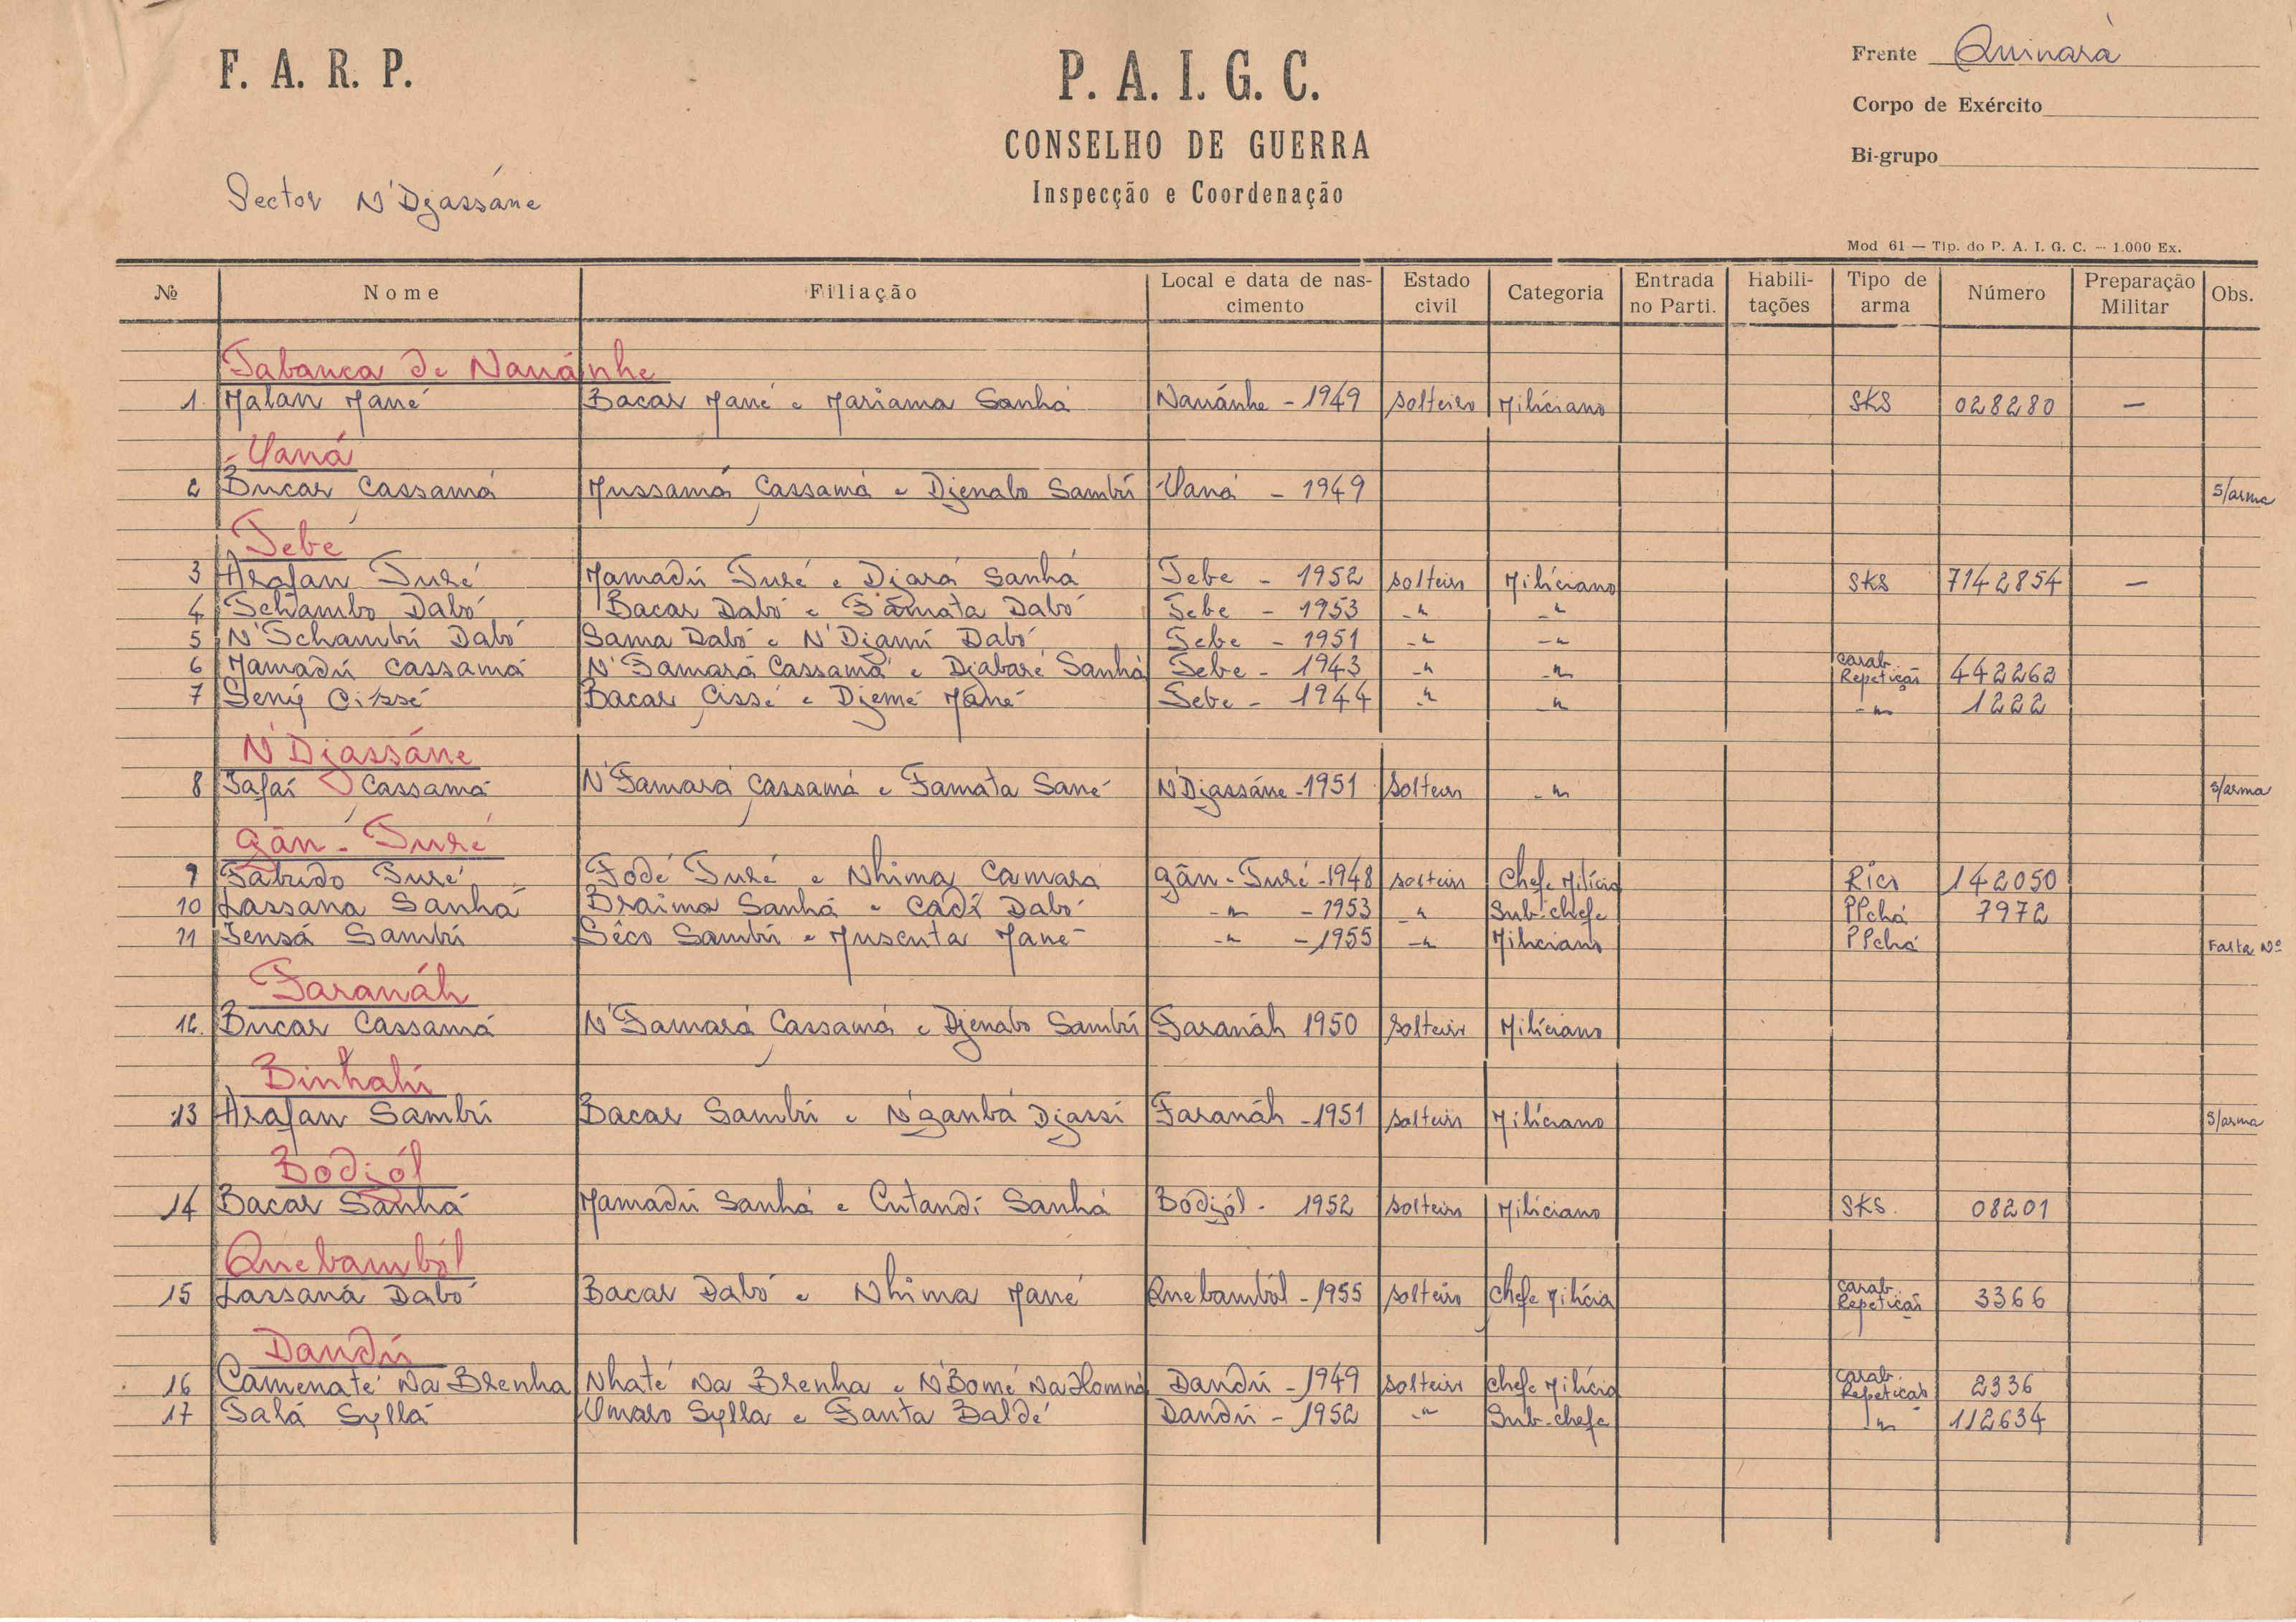 F. A. R. P.
P. A. I. G. C.
CONSELHO DE GUERRA
Inspecção e Coordenação
Frente Quinará
Corpo de Exército
Bi-grupo
Sector N'Djassáne
Mod 61 — Tip. do P. A. I. G. C. — 1.000 Ex.
№ Nome Filiação Local e data de nascimento Estado civil Categoria Entrada no Parti. Habilitações Tipo de arma Número Preparação Militar Obs.
Tabanca de Nauánhe
1. Malan Mané Bacar Mané e Mariama Sanhá Nauánhe - 1949 solteiro Miliciano SKS 028280 —
Uaná
2 Bucar Cassamá Mussamá Cassamá e Djenabo Sambú Uaná - 1949 s/arma
Tebe
3 Arafan Turé Mamadú Turé e Djará Sanhá Tebe - 1952 solteiro Miliciano SKS 7142854 —
4 Tchambo Dabó Bacar Dabó e Fámata Dabó Tebe - 1953 -"- -"-
5 N'Tchambú Dabó Sama Dabó e N'Djamí Dabó Tebe - 1951 -"- -"-
6 Mamadú Cassamá N'Famará Cassamá e Djabaré Sanhá Tebe - 1943 -"- -"- carab. Repetição 442262
7 Seny Cissé Bacar Cissé e Djemé Mané Tebe - 1944 -"- -"- -"- 1222
N'Djassáne
8 Fafaí Cassamá N'Famará Cassamá e Famata Sané N'Djassáne - 1951 solteiro -"- s/arma
Gãn - Turé
9 Turé Fodé Turé e Nhima Camará Gãn - Turé - 1948 solteiro Chefe Milícia Rico 142050
10 Lassana Sanhá Braima Sanhá e Cadí Dabó -"- - 1953 -"- Sub-chefe PPchá 7972
11 Sambú Sêco Sambú e Mané -"- - 1955 -"- Miliciano PPchá Falta Nº
Faranáh
12. Bucar Cassamá N'Famará Cassamá e Djenabo Sambú Faranáh 1950 solteiro Miliciano
Binhalú
13 Arafan Sambú Bacar Sambú e N'ganbá Djassí Faranáh - 1951 solteiro Miliciano s/arma
Bodjól
14 Bacar Sanhá Mamadú Sanhá e Cutandí Sanhá Bodjól - 1952 solteiro Miliciano SKS. 08201
Quebamból
15 Lassaná Dabó Bacar Dabó e Nhima Mané Quebamból - 1955 solteiro Chefe Milícia carab. Repetição 3366
Dandú
16 Camenaté Na Brenha Nhaté Na Brenha e N'Bomé Na Homna Dandú - 1949 solteiro Chefe Milícia carab. Repetição 2336
17 Salá Sylla Umaro Sylla e Fanta Baldé Dandú - 1952 -"- Sub-chefe -"- 112634